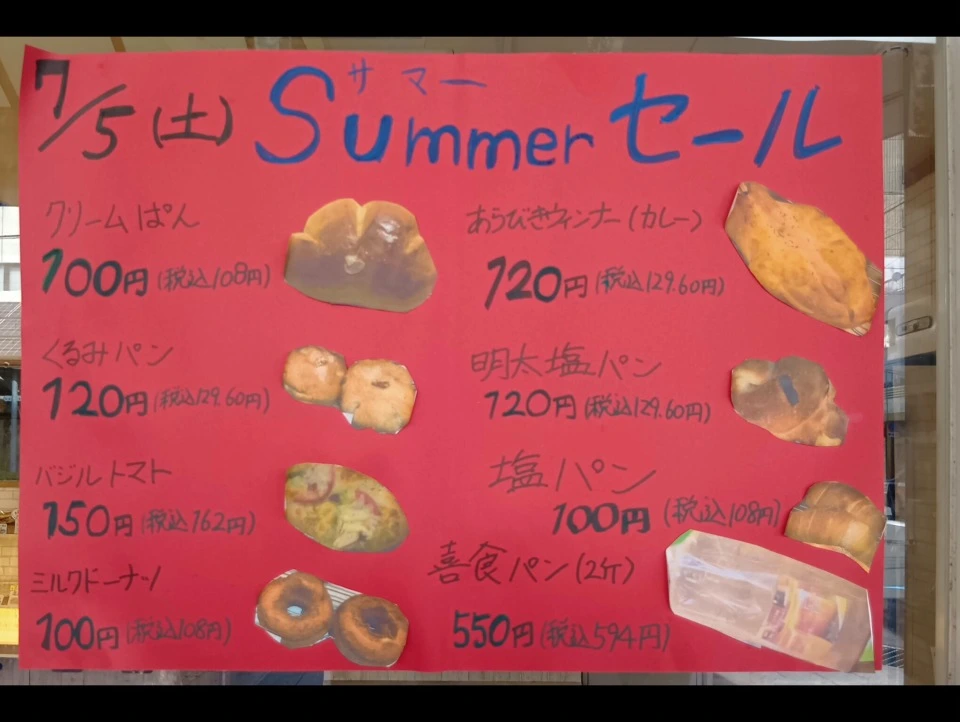 7/5(土) Summerセール
サマー
クリームぱん
100円(税込108円)
くるみパン
120円(税込129.60円)
バジルトマト
150円(税込162円)
ミルクドーナツ
100円(税込108円)
あらびきウィンナー(カレー)
120円(税込129.60円)
明太塩パン
120円(税込129.60円)
塩パン
100円(税込108円)
喜食パン(2斤)
550円(税込594円)